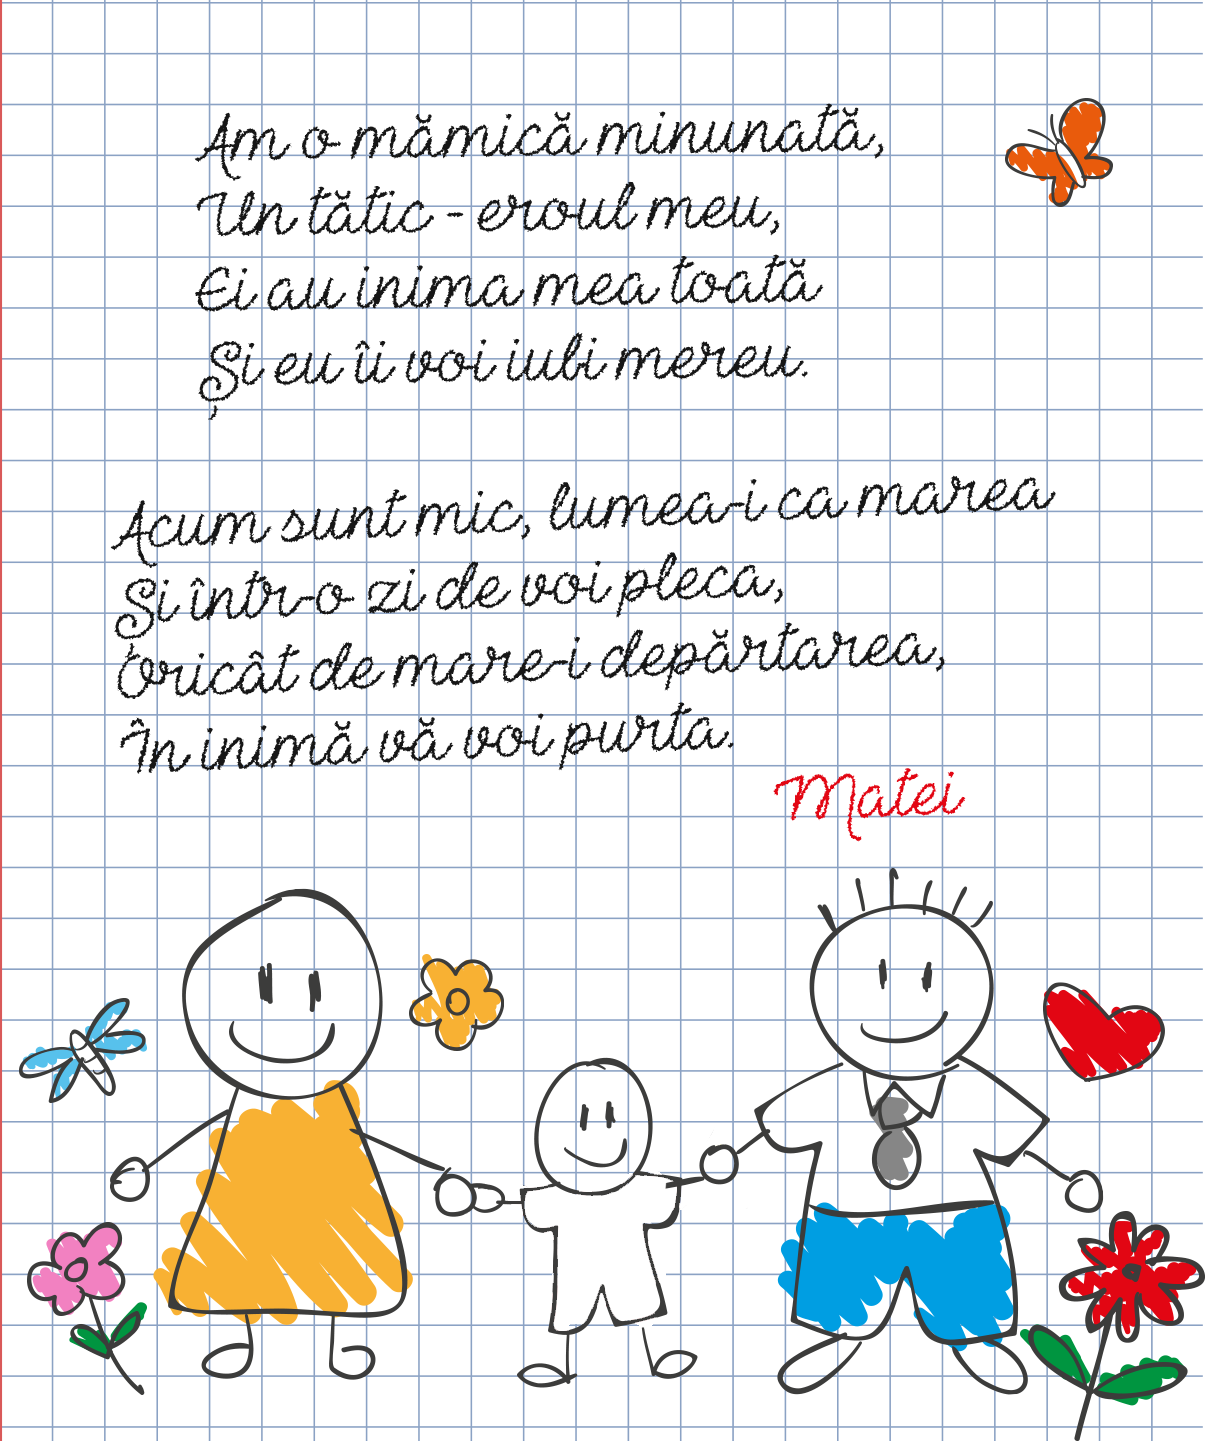 Am o mămică minunată,
Un tătic - eroul meu,
Ei au inima mea toată
Și eu îi voi iubi mereu.
Acum sunt mic, lumea-i ca marea
Și într-o zi de voi pleca,
Oricât de mare-i depărtarea,
În inimă vă voi purta.
Matei